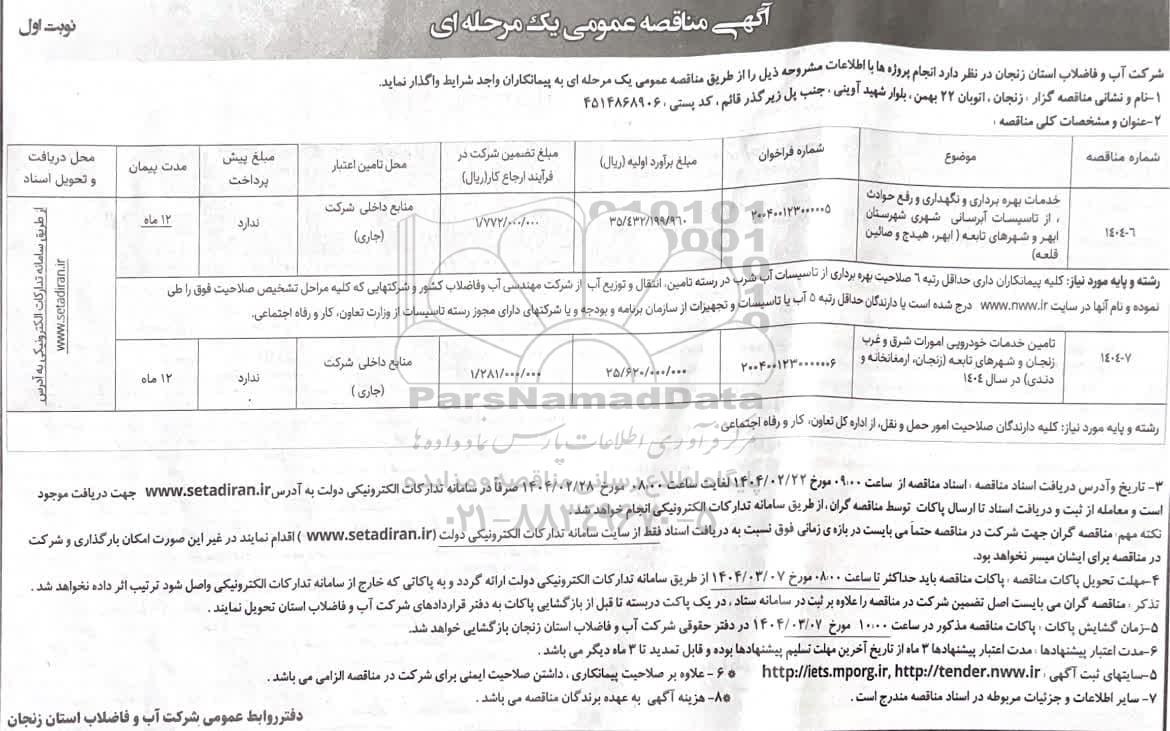 آگهی مناقصه عمومی یک مرحله ای
نوبت اول
شرکت آب و فاضلاب استان زنجان در نظر دارد انجام پروژه ها با اطلاعات مشروحه ذیل را از طریق مناقصه عمومی یک مرحله ای به پیمانکاران واجد شرایط واگذار نماید.
۱-نام و نشانی مناقصه گزار : زنجان ، اتوبان ۲۲ بهمن ، بلوار شهید آوینی ، جنب پل زیرگذر قائم ، کد پستی : ۴۵۱۴۸۶۸۹۰۶
۲-عنوان و مشخصات کلی مناقصه :
شماره مناقصه
موضوع
شماره فراخوان
مبلغ برآورد اولیه (ریال)
مبلغ تضمین شرکت در
فرآیند ارجاع کار(ریال)
محل تامین اعتبار
مبلغ پیش
پرداخت
مدت پیمان
محل دریافت
و تحویل اسناد
۱۴۰۴-۶
خدمات بهره برداری و نگهداری و رفع حوادث
، از تاسیسات آبرسانی شهری شهرستان
ابهر و شهرهای تابعه ( ابهر، هیدج و صائین
قلعه)
۲۰۰۴۰۰۱۲۳۰۰۰۰۰۵
۳۵/۴۳۲/۱۹۹/۹۶۰
۱/۷۷۲/۰۰۰/۰۰۰
منابع داخلی شرکت
(جاری)
ندارد
۱۲ ماه
از طریق سامانه تدارکات الکترونیکی به آدرس
www.setadiran.ir
رشته و پایه مورد نیاز: کلیه پیمانکاران داری حداقل رتبه ۶ صلاحیت بهره برداری از تاسیسات آب شرب در رسته تامین، انتقال و توزیع آب از شرکت مهندسی آب وفاضلاب کشور و شرکتهایی که کلیه مراحل تشخیص صلاحیت فوق را طی
نموده و نام آنها در سایت www.nww.ir درج شده است یا دارندگان حداقل رتبه ۵ آب یا تاسیسات و تجهیزات از سازمان برنامه و بودجه و یا شرکتهای دارای مجوز رسته تاسیسات از وزارت تعاون، کار و رفاه اجتماعی.
۱۴۰۴-۷
تامین خدمات خودرویی امورات شرق و غرب
زنجان و شهرهای تابعه (زنجان، ارمغانخانه و
دندی) در سال ۱۴۰۴
۲۰۰۴۰۰۱۲۳۰۰۰۰۰۰۶
۲۵/۶۲۰/۰۰۰/۰۰۰
۱/۲۸۱/۰۰۰/۰۰۰
منابع داخلی شرکت
(جاری )
ندارد
۱۲ ماه
ParsNamadData
رشته و پایه مورد نیاز: کلیه دارندگان صلاحیت امور حمل و نقل، از اداره کل تعاون، کار و رفاه اجتماعی.
مرکز فرآوری اطلاعات پارس نماد داده ها
پایگاه اطلاع رسانی مناقصه و مزایده
۳- تاریخ وآدرس دریافت اسناد مناقصه : اسناد مناقصه از ساعت ۰۹:۰۰ مورخ ۱۴۰۴/۰۲/۲۲ لغایت ساعت ۰۸:۰۰ مورخ ۱۴۰۴/۰۲/۲۸ صرفاً در سامانه تدارکات الکترونیکی دولت به آدرس www.setadiran.ir جهت دریافت موجود
است و معامله از ثبت و دریافت اسناد تا ارسال پاکات توسط مناقصه گران ، از طریق سامانه تدارکات الکترونیکی انجام خواهد شد.
۰۲۱-۸۸۳۴۹۶۷۰-۵
نکته مهم: مناقصه گران جهت شرکت در مناقصه حتماً می بایست در بازه ی زمانی فوق نسبت به دریافت اسناد فقط از سایت سامانه تدارکات الکترونیکی دولت (www.setadiran.ir ) اقدام نمایند در غیر این صورت امکان بارگذاری و شرکت
در مناقصه برای ایشان میسر نخواهد بود.
۴-مهلت تحویل پاکات مناقصه : پاکات مناقصه باید حداکثر تا ساعت ۰۸:۰۰ مورخ ۱۴۰۴/۰۳/۰۷ از طریق سامانه تدارکات الکترونیکی دولت ارائه گردد و به پاکاتی که خارج از سامانه تدارکات الکترونیکی واصل شود ترتیب اثر داده نخواهد شد .
تذکر : مناقصه گران می بایست اصل تضمین شرکت در مناقصه را علاوه بر ثبت در سامانه ستاد ، در یک پاکت دربسته تا قبل از بازگشایی پاکات به دفتر قراردادهای شرکت آب و فاضلاب استان تحویل نمایند .
۵-زمان گشایش پاکات : پاکات مناقصه مذکور در ساعت ۱۰:۰۰ مورخ ۱۴۰۴/۰۳/۰۷ در دفتر حقوقی شرکت آب و فاضلاب استان زنجان بازگشایی خواهد شد.
۶-مدت اعتبار پیشنهادها : مدت اعتبار پیشنهادها ۳ ماه از تاریخ آخرین مهلت تسلیم پیشنهادها بوده و قابل تمدید تا ۳ ماه دیگر می باشد .
۵-سایتهای ثبت آگهی : http://iets.mporg.ir, http://tender.nww.ir
* ۶- علاوه بر صلاحیت پیمانکاری ، داشتن صلاحیت ایمنی برای شرکت در مناقصه الزامی می باشد .
۷- سایر اطلاعات و جزئیات مربوطه در اسناد مناقصه مندرج است .
*۸- هزینه آگهی به عهده برندگان مناقصه می باشد .
دفتر روابط عمومی شرکت آب و فاضلاب استان زنجان